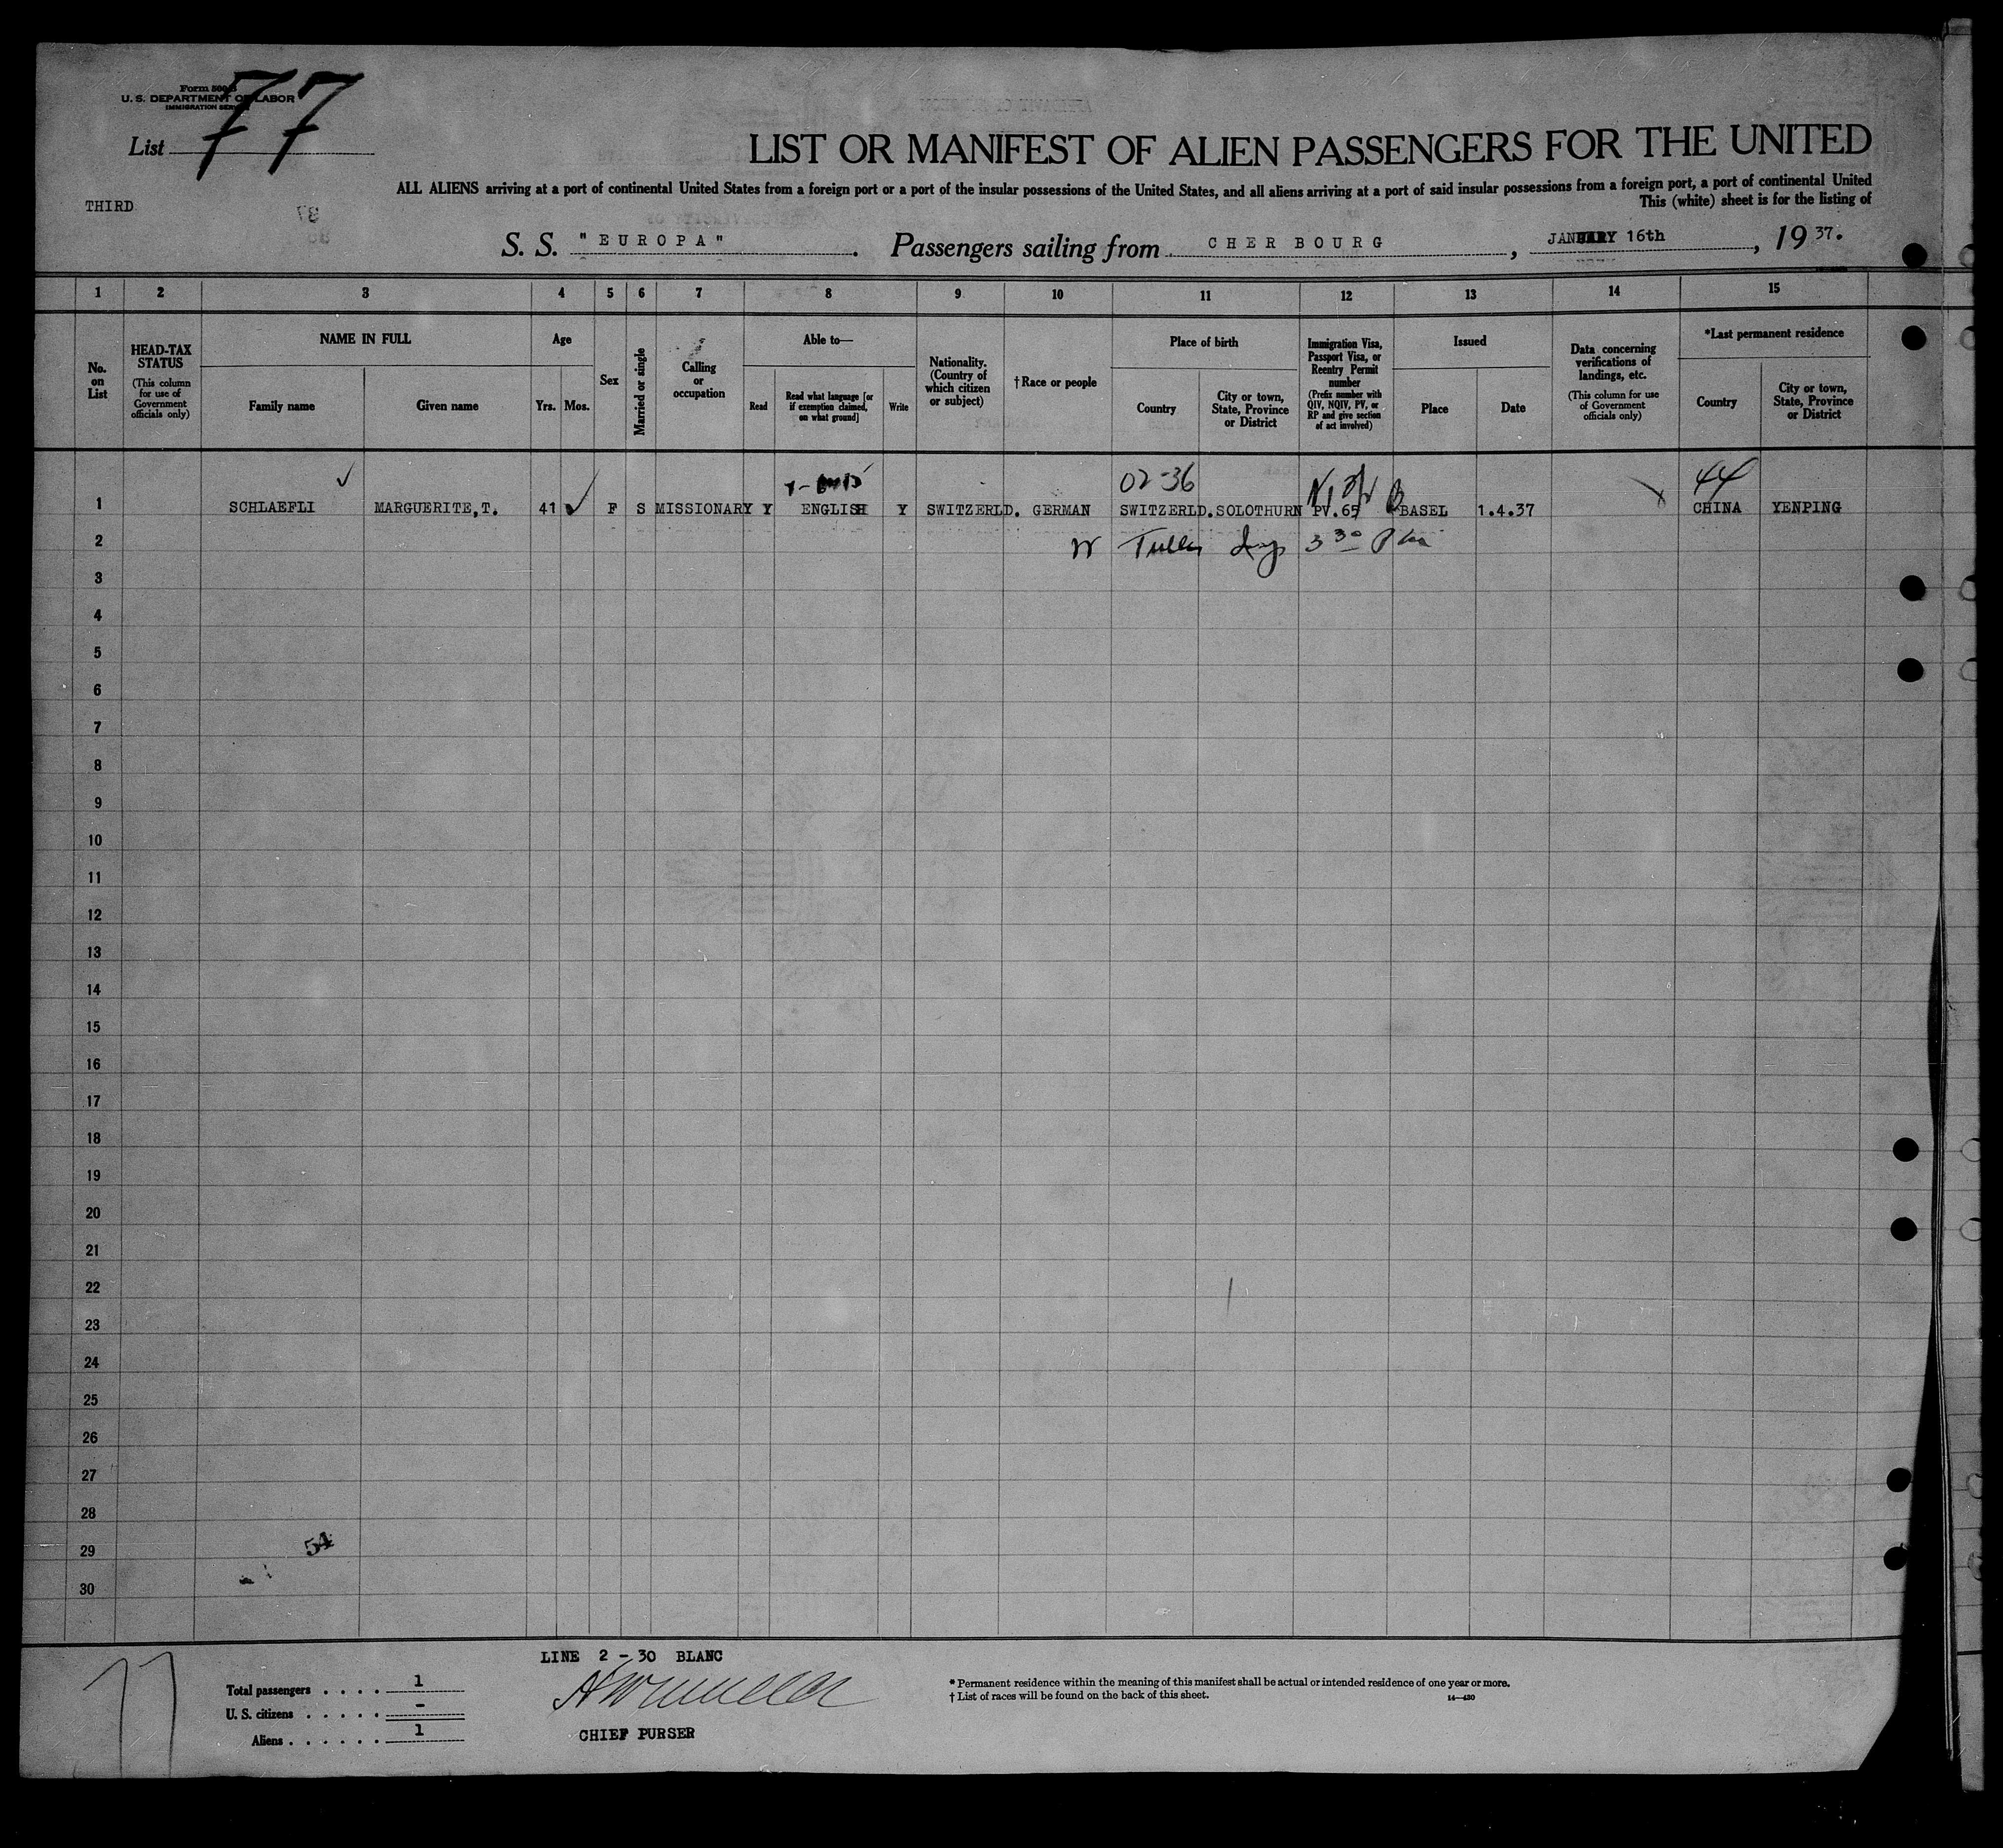 Form 500 B
U. S. DEPARTMENT OF LABOR
IMMIGRATION SERVICE
List 77
LIST OR MANIFEST OF ALIEN PASSENGERS FOR THE UNITED
ALL ALIENS arriving at a port of continental United States from a foreign port or a port of the insular possessions of the United States, and all aliens arriving at a port of said insular possessions from a foreign port, a port of continental United
This (white) sheet is for the listing of
THIRD
S. S. "EUROPA". Passengers sailing from CHERBOURG, JANUARY 16th, 19 37.
1 2 3 4 5 6 7 8 9 10 11 12 13 14 15
No. on List
HEAD-TAX STATUS
(This column for use of Government officials only)
NAME IN FULL
Family name
Given name
Age
Yrs.
Mos.
Sex
Married or single
Calling or occupation
Able to—
Read
Read what language [or if exemption claimed, on what ground]
Write
Nationality. (Country of which citizen or subject)
†Race or people
Place of birth
Country
City or town, State, Province or District
Immigration Visa, Passport Visa, or Reentry Permit number
(Prefix number with QIV, NQIV, PV, or RP and give section of act involved)
Issued
Place
Date
Data concerning verifications of landings, etc.
(This column for use of Government officials only)
*Last permanent residence
Country
City or town, State, Province or District
02-36 44
1 SCHLAEFLI MARGUERITE,T. 41 F S MISSIONARY Y ENGLISH Y SWITZERLD. GERMAN SWITZERLD. SOLOTHURN PV.65 BASEL 1.4.37 CHINA YENPING
2
3
4
5
6
7
8
9
10
11
12
13
14
15
16
17
18
19
20
21
22
23
24
25
26
27
28
29
30
54
LINE 2 - 30 BLANC
Total passengers . . . . 1
U. S. citizens . . . . . -
Aliens . . . . . . 1
CHIEF PURSER
* Permanent residence within the meaning of this manifest shall be actual or intended residence of one year or more.
† List of races will be found on the back of this sheet.
14—430
77